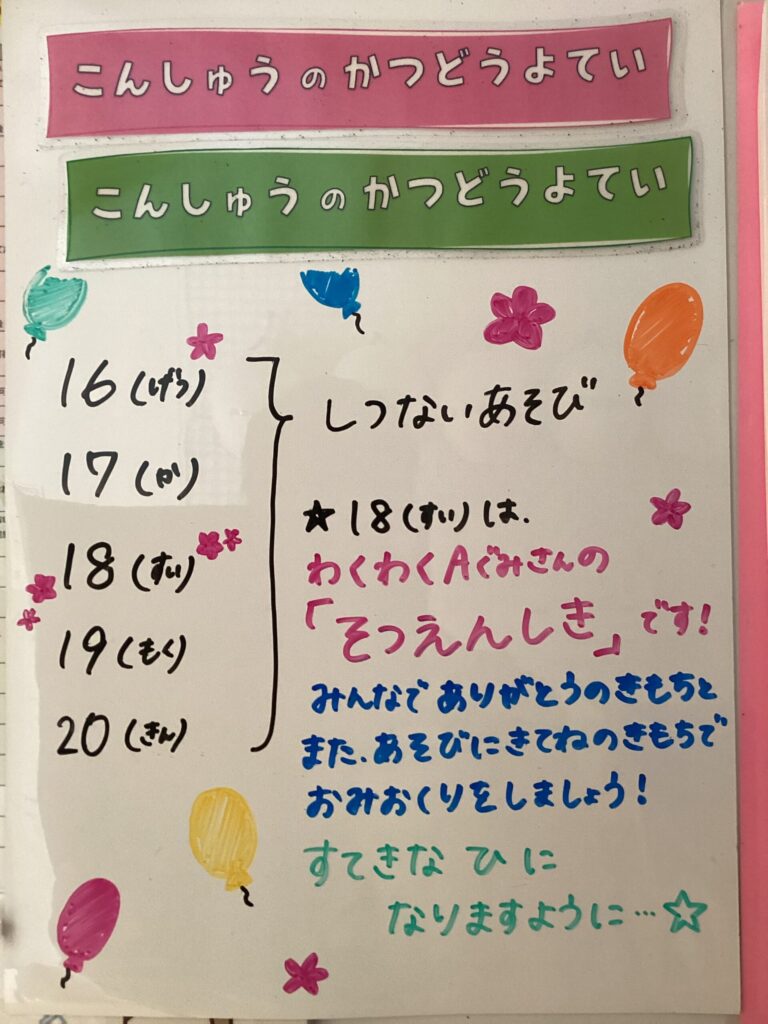 こんしゅうのかつどうよてい
こんしゅうのかつどうよてい
16(げつ)
17(か)
18(すい)
19(もく)
20(きん)
しつないあそび
★18(すい)は、
わくわくAぐみさんの
「そつえんしき」です!
みんなでありがとうのきもちと
また、あそびにきてねのきもちで
おみおくりをしましょう!
すてきなひに
なりますように…☆